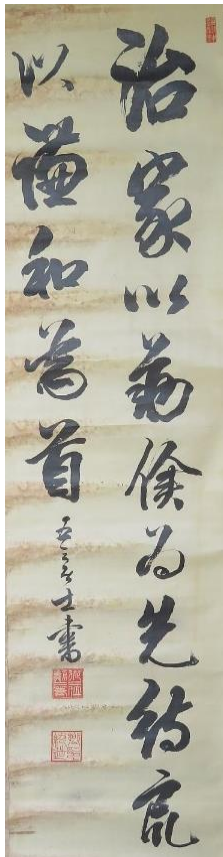 治家以勤儉為先待
以謙和為首
士書